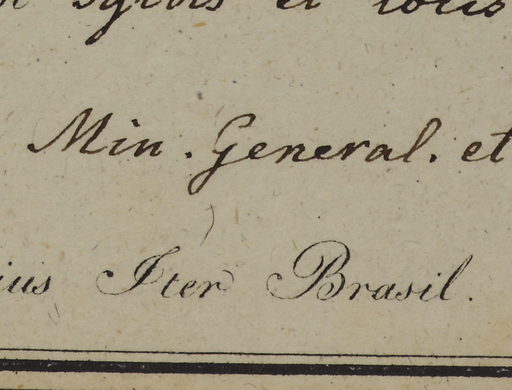 sylvis et locis
Min. General. et
ius Iter Brasil.